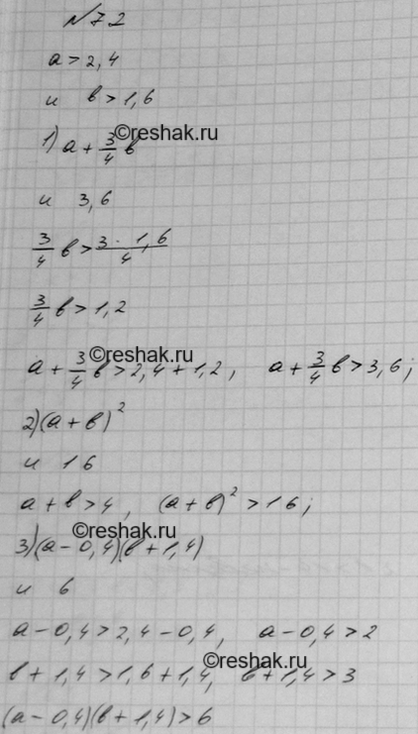 №72
a > 2,4
и b > 1,6
1) a + 3/4 b
©reshak.ru
и 3,6
3/4 b > 3 · 1,6/4
3/4 b > 1,2
©reshak.ru
a + 3/4 b > 2,4 + 1,2 ; a + 3/4 b > 3,6 ;
2) (a + b)²
и 16
a + b > 4 , (a + b)² > 16 ;
3) (a − 0,4)(b + 1,4)
и 6
a − 0,4 > 2,4 − 0,4 , a − 0,4 > 2
©reshak.ru
b + 1,4 > 1,6 + 1,4 , b + 1,4 > 3
(a − 0,4)(b + 1,4) > 6